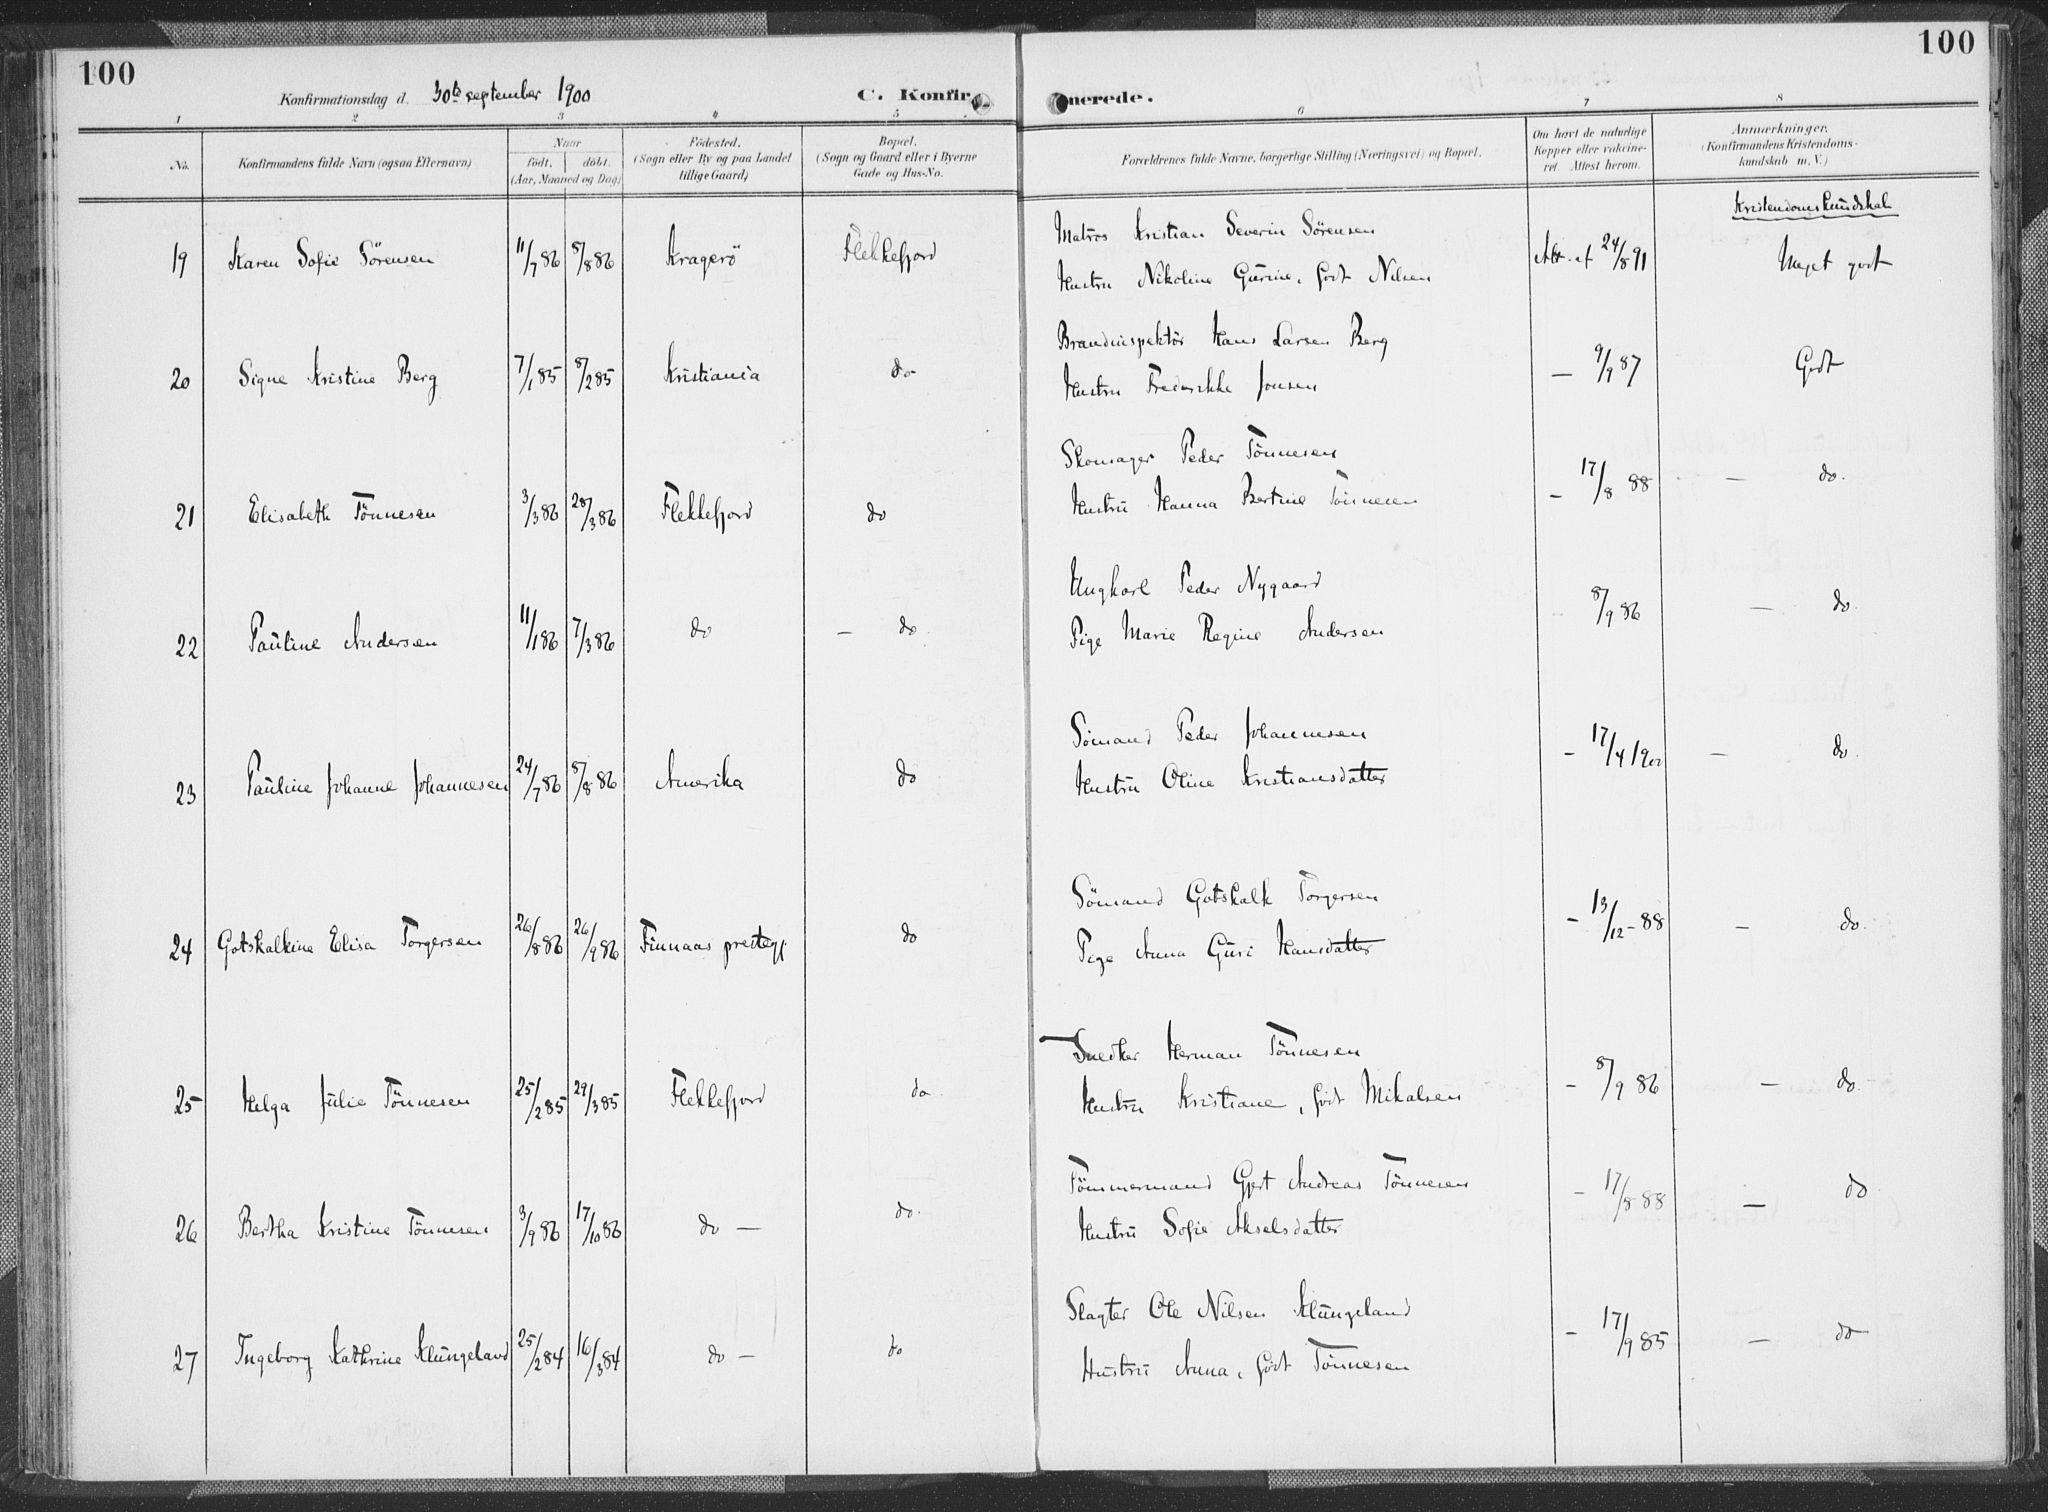 100
100
Konfirmationsdag d. 30te september 1900
C. Konfirmerede.
1 2 3 4 5 6 7 8
No.
Konfirmandens fulde Navn (ogsaa Efternavn)
Naar
født. døbt.
(Aar, Maaned og Dag)
Födested.
(Sogn eller By og paa Landet
tillige Gaard)
Bopæl.
(Sogn og Gaard eller i Byerne
Gade og Hus-No.
Forældrenes fulde Navne, borgerlige Stilling (Næringsvei) og Bopæl.
Om havt de naturlige
Kopper eller vakcine-
ret. Attest herom.
Anmærkninger.
(Konfirmandens Kristendoms-
kundskab m. V.)
Kristendomskundskab
19 Karen Sofie Sörensen 11/7 86 8/8 86 Kragerö Flekkefjord
Matros Kristian Severin Sörensen
Hustru Nikoline Gurine, født Nilsen
Att. af 24/8 91 Meget godt
20 Signe Kristine Berg 7/1 85 8/2 85 Kristiania do
Brandinspektör Hans Larsen Berg
Hustru Frederikke Jonsen
— 9/9 87 Godt
21 Elisabeth Tönnesen 3/3 86 28/3 86 Flekkefjord do
Skomager Peder Tönnesen
Hustru Hanna Bertine Tönnesen
— 17/8 88 — do.
22 Pauline Andersen 11/1 86 7/3 86 do — do.
Ungkarl Peder Nygaard
Pige Marie Regine Andersen
8/9 86 — do.
23 Pauline Johanne Johannesen 24/7 86 8/8 86 Amerika do
Sömand Peder Johannesen
Hustru Oline Kristiansdatter
— 17/4 1900 — do.
24 Gotskalkine Elisa Torgersen 26/8 86 26/9 86 Finnaas prestegj. do
Sömand Gotskalk Torgersen
Pige Anna Guri Hansdatter
— 13/12 - 88 — do.
25 Helga Julie Tönnesen 25/2 85 29/3 85 Flekkefjord do.
Snedker Herman Tönnesen
Hustru Kristiane, født Mikalsen
— 8/9 86 — do.
26 Bertha Kristine Tönnesen 3/9 86 17/10 86 do — do.
Tömmermand Gjert Andreas Tönnesen
Hustru Sofie Akselsdatter
— 17/8 88 — do
27 Ingeborg Kathrine Klungeland 25/2 84 16/3 84 do — do
Slagter Ole Nilsen Klungeland
Hustru Anna, født Tönnesen
— 17/9 85 — do